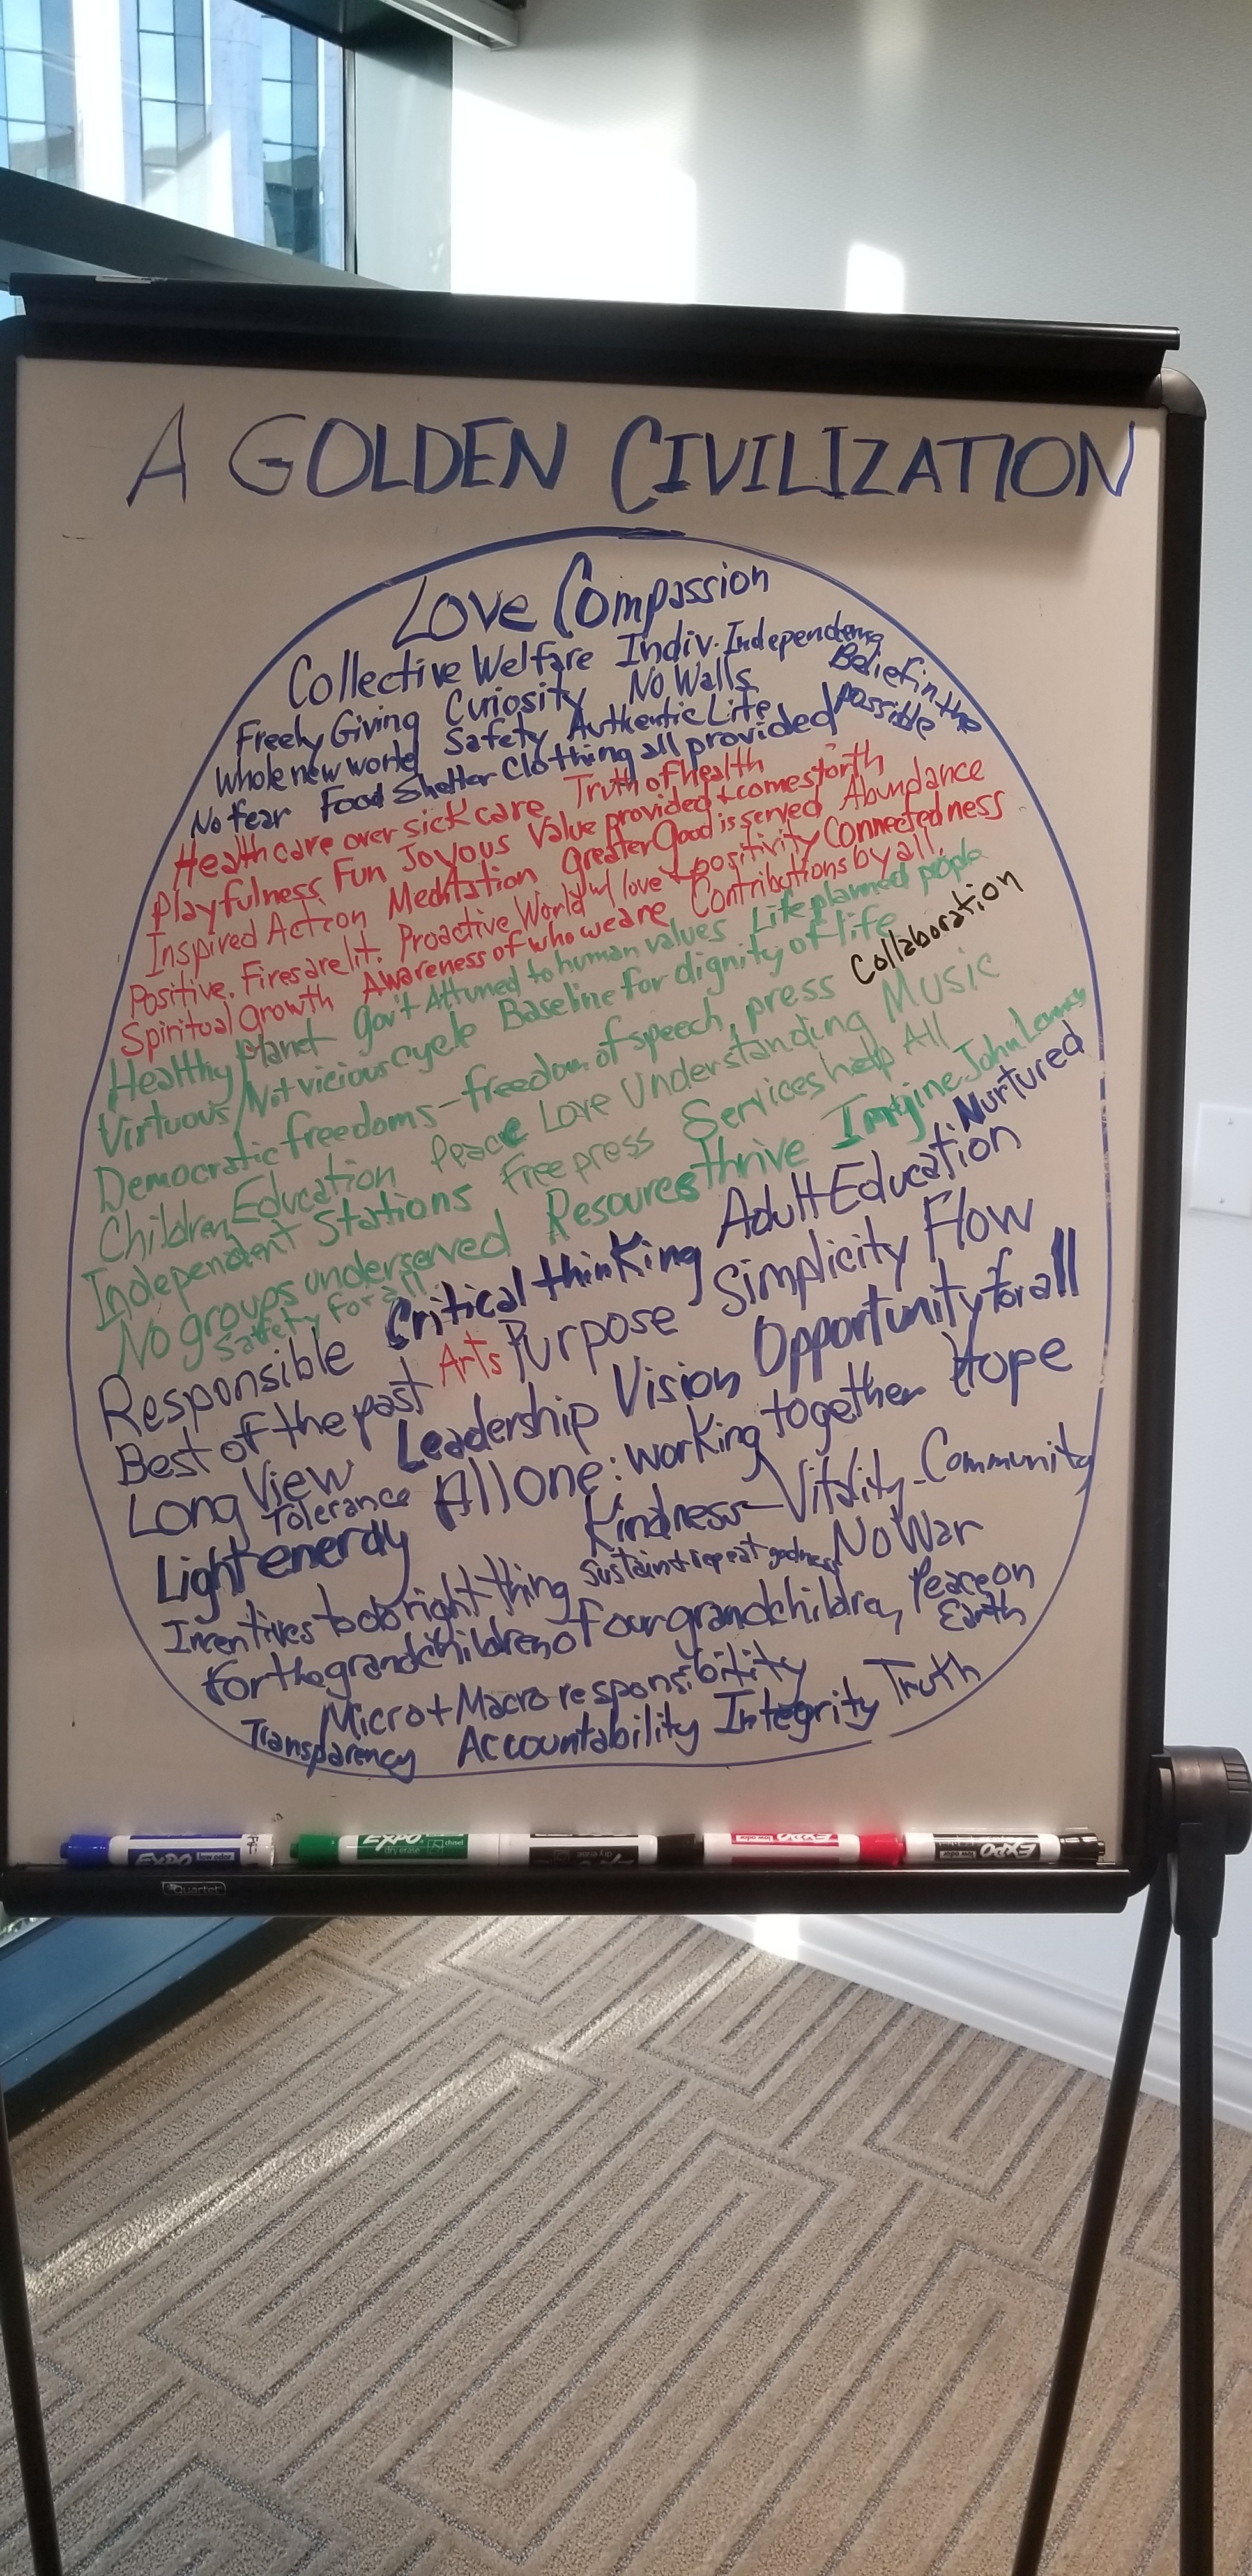 A GOLDEN CIVILIZATION
Love Compassion
Collective Welfare Indiv. Independence
Freely Giving Curiosity No Walls Belief in the
Whole new world Safety Authentic Life possible
No fear Food Shelter Clothing all provided
Health care over sick care Truth of health
Playfulness Fun Joyous Value provided + comes forth
Inspired Action Meditation Greater Good is served Abundance
Positive. Fires are lit. Proactive World w/ love + positivity Connectedness
Spiritual growth Awareness of who we are Contributions by all.
Healthy Planet Gov't Attuned to human values Life planned people
Virtuous/Not vicious cycle Baseline for dignity of life
Democratic freedoms - freedom of speech, press Collaboration
Children Education Peace Love Understanding Music
Independent Stations Free press Services help All
No groups underserved Resources thrive Imagine John Lennon
Safety for all
Responsible Critical thinking Adult Education Nurtured
Best of the past Arts Purpose Simplicity Flow
Long View Leadership Vision Opportunity for all
Tolerance All one: working together Hope
Light energy Kindness - Vitality - Community
Incentives to do right thing Sustain + repeat goodness No War
For the grandchildren of our grandchildren Peace on
Earth
Micro + Macro responsibility
Transparency Accountability Integrity Truth
EXPO low odor
EXPO dry erase chisel
EXPO dry erase
EXPO low odor
EXPO low odor
Quartet